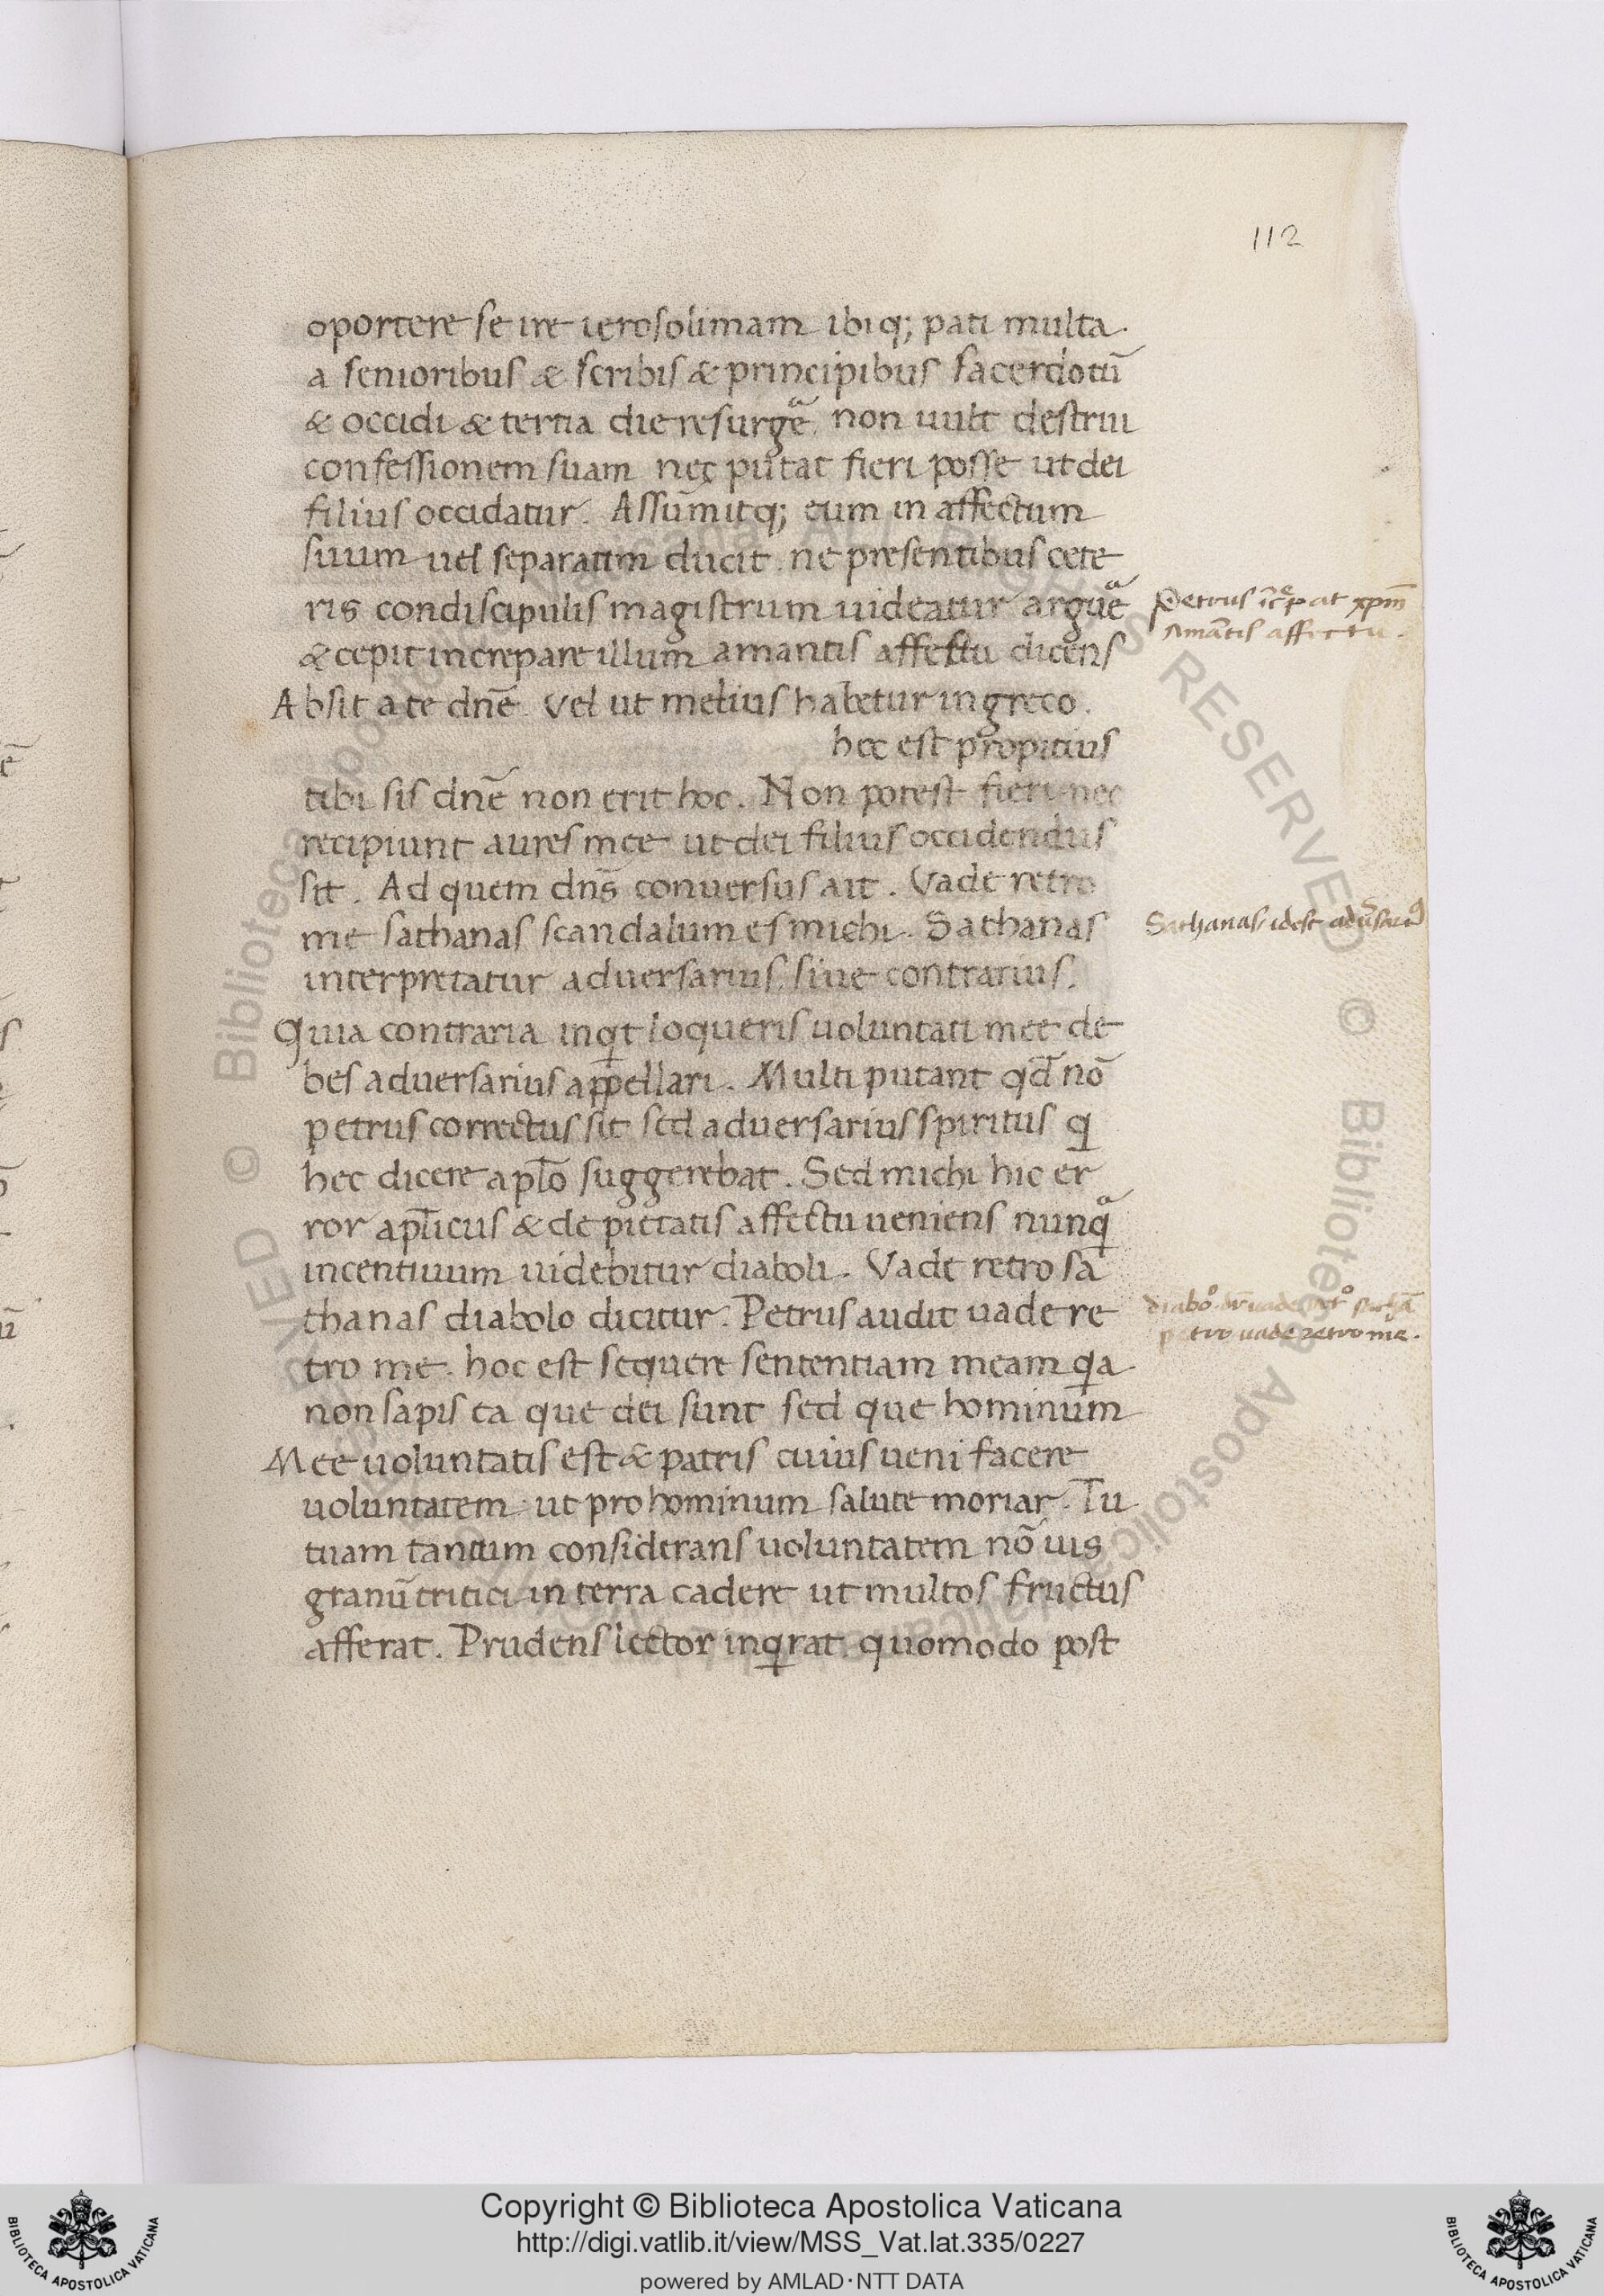 112
oportere se ire ierosolimam ibiq; pati multa.
a senioribus & scribis & principibus sacerdotū
& occidi & tertia die resurgē. non uult destrui
confessionem suam nec putat fieri posse ut dei
filius occidatur. Assūmitq; eum in affectum
suum uel separatim ducit. ne presentibus cete
ris condiscipulis magistrum uideatur arguē
& cepit increpare illum amantis affectu dicens
Petrus īcͤpat xp̄m
amātis affectu.
Absit a te dn̄e. Vel ut melius habetur in greco.
hoc est propitius
tibi sis dn̄e non erit hoc. Non potest fieri nec
recipiunt aures mee ut dei filius occidendus
sit. Ad quem dn̄s conuersus ait. Vade retro
me sathanas scandalum es michi. Sathanas
Sathanas, idest
interpretatur aduersarius, siue contrarius.
Quia contraria inqͥt loqueris uoluntati mee de
bes aduersarius appellari. Multi putant qd̄ nō
petrus correctus sit sed aduersarius spiritus qͥ
hec dicere apl̄o suggerebat. Sed michi hic er
ror apl̄icus & de pietatis affectu ueniens nunqͣ
incentiuum uidebitur diaboli. Vade retro sa
thanas diabolo dicitur. Petrus audit uade re
diabo̊ dr̄ uade ret̊ sathā
petro uade retro me.
tro me. hoc est sequere sententiam meam qͥa
non sapis ea que dei sunt sed que hominum
Mee uoluntatis est & patris cuius ueni facere
uoluntatem. ut pro hominum salute moriar. Tu
tuam tantum considerans uoluntatem nō uis
granū tritici in terra cadere ut multos fructus
afferat. Prudens lector inqͥrat quomodo post
Copyright © Biblioteca Apostolica Vaticana
http://digi.vatlib.it/view/MSS_Vat.lat.335/0227
powered by AMLAD·NTT DATA
BIBLIOTECA APOSTOLICA VATICANA
BIBLIOTECA APOSTOLICA VATICANA